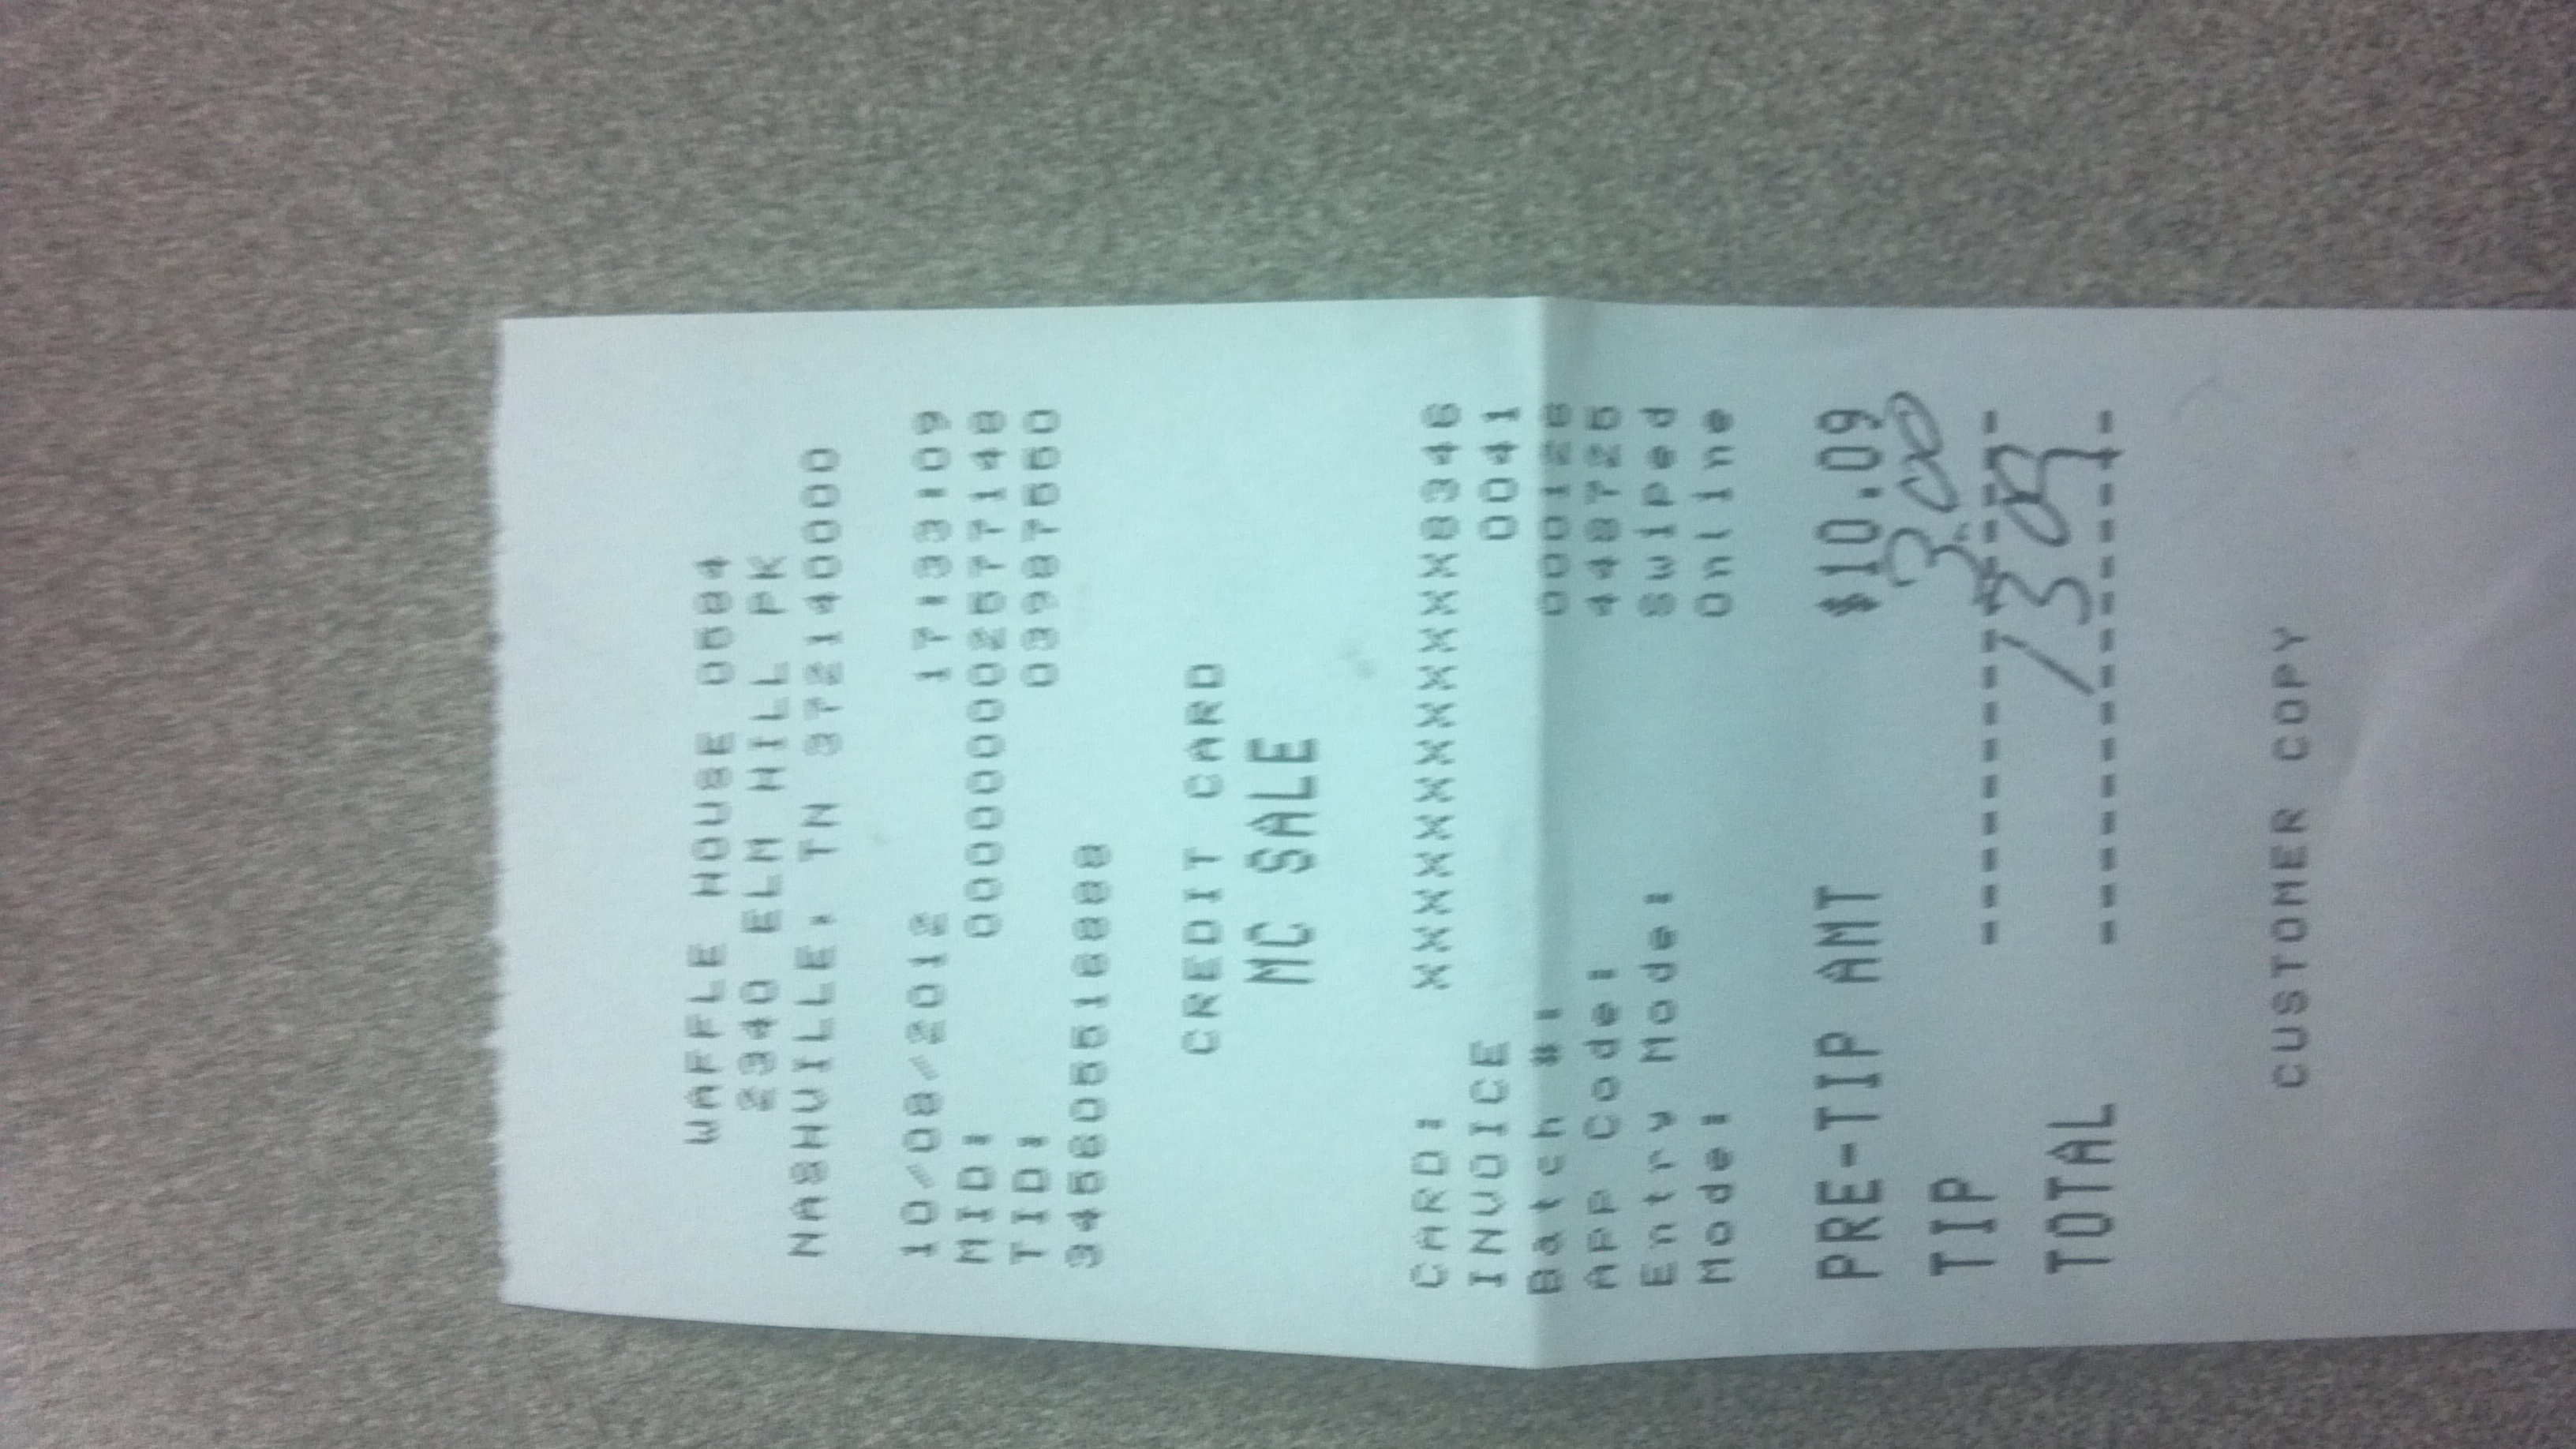 WAFFLE HOUSE 0584
2340 ELM HILL PK
NASHVILLE, TN 372140000
10/08/2012 17:33:09
MID: 000000002577148
TID: 03987550
CREDIT CARD
MC SALE
CARD: XXXXXXXXXXXX8346
INVOICE 0041
Batch #: 000128
APP Code: 448725
Entry Mode: Swiped
Mode: Online
PRE-TIP AMT $10.09
TIP 3.00
TOTAL 13 09
CUSTOMER COPY